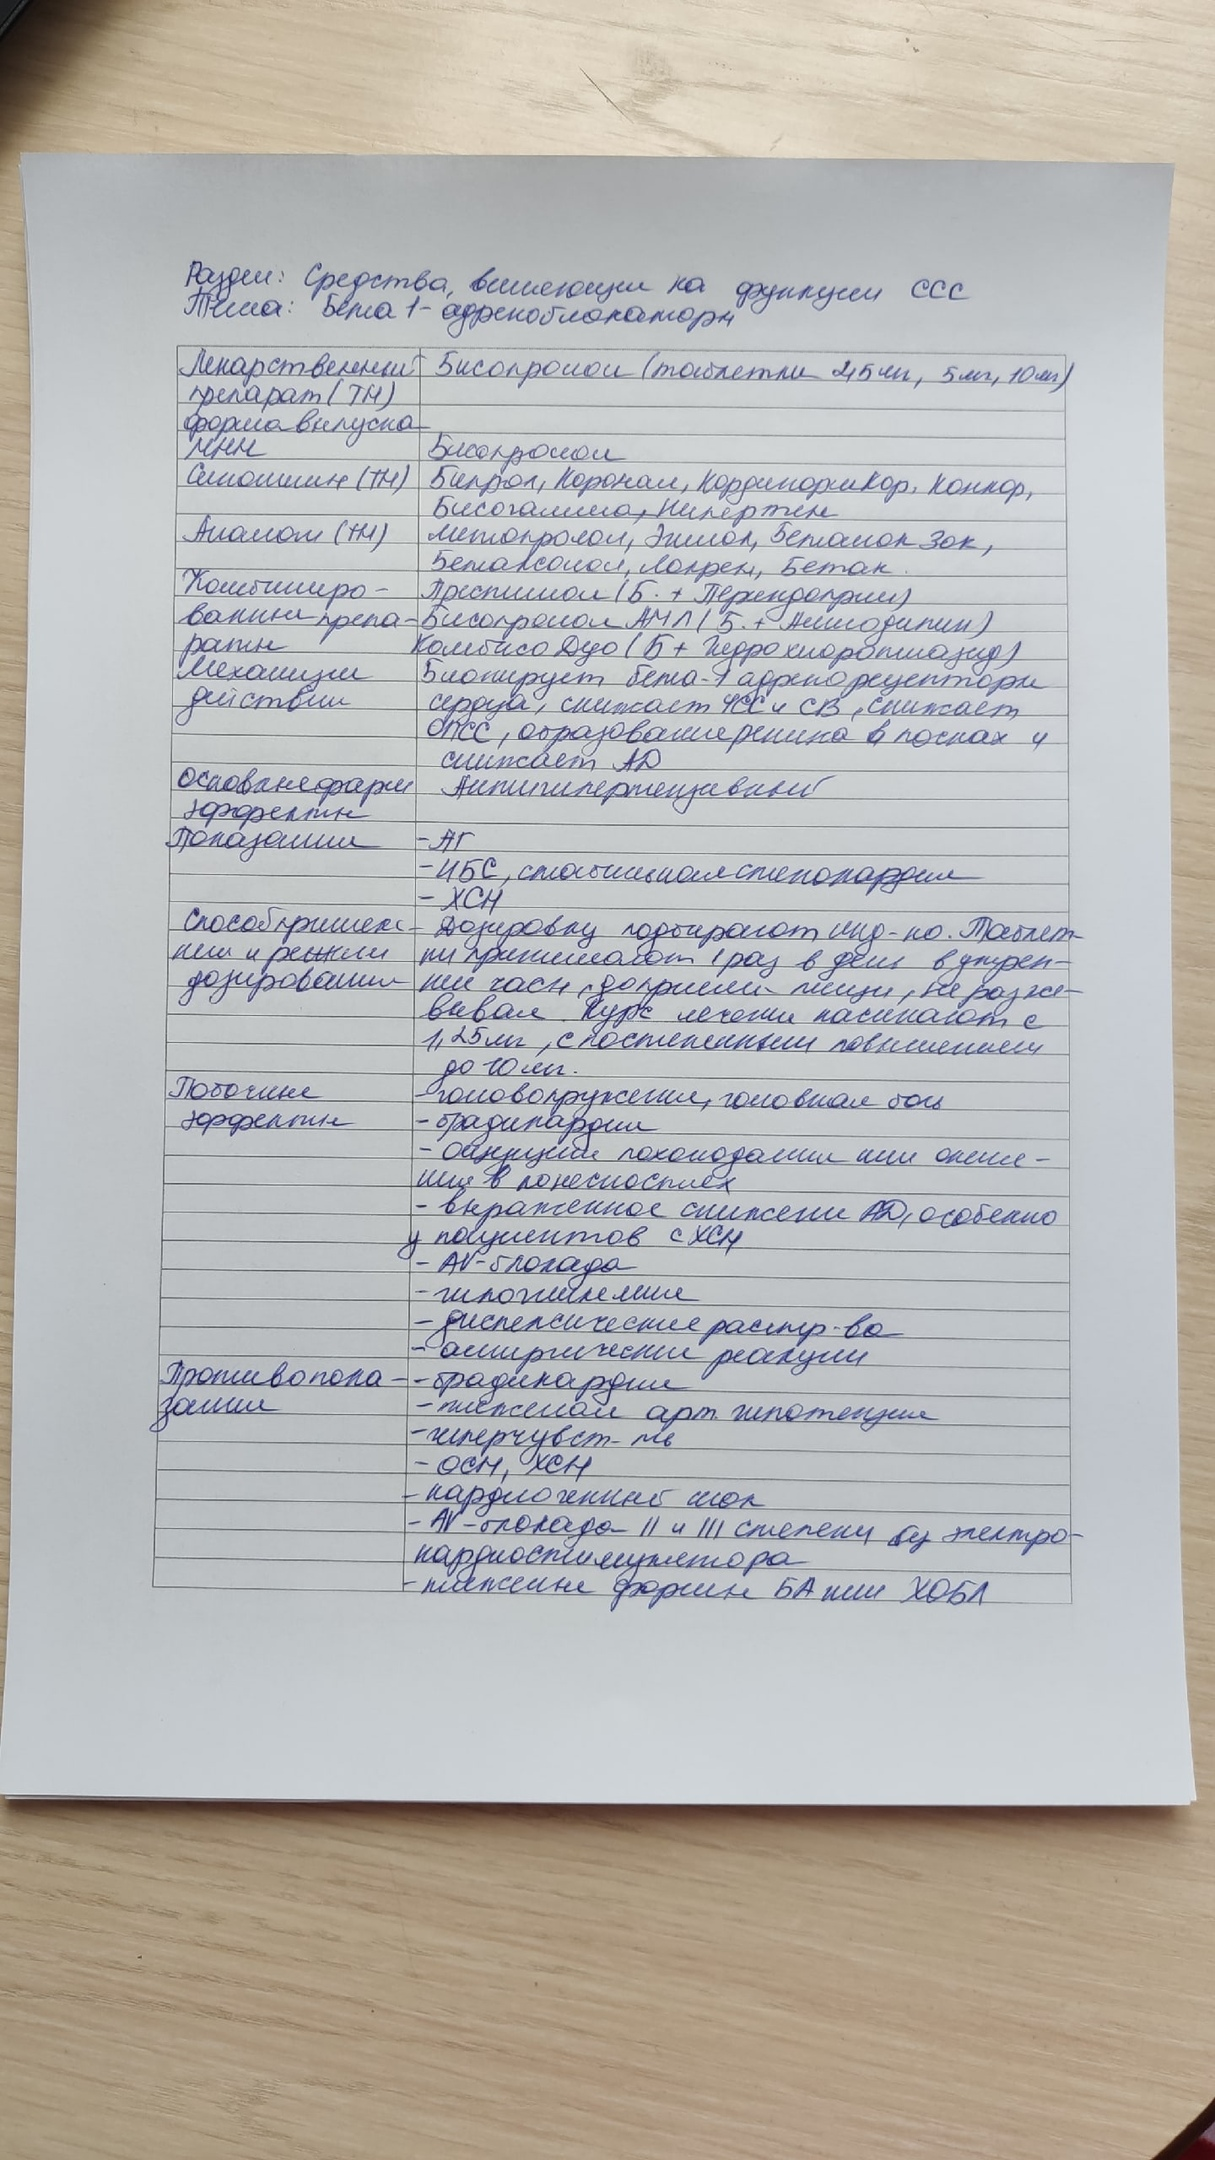 Раздел: Средства, влияющие на функции ССС
Тема: Бета 1-адреноблокаторы
Лекарственный Бисопролол (таблетки 2,5мг, 5мг, 10мг)
препарат (ТН)
форма выпуска
МНН Бисопролол
Синонимы (ТН) Бипрол, Коронал, Кординорм Кор, Конкор,
Бисогамма, Нипертен
Аналоги (ТН) Метопролол, Эгилок, Беталок Зок,
Бетаксолол, Локрен, Бетак.
Комбиниро- Престилол (Б. + Периндоприл)
ванные препа- Бисопролол АМЛ (Б. + Амлодипин)
раты Комбисо Дуо (Б + Гидрохлоротиазид)
Механизм Блокирует бета-1 адренорецепторы
действия сердца, снижает ЧСС и СВ, снижает
ОПСС, образование ренина в почках и
снижает АД
Основные фарм Антигипертензивный
эффекты
Показания - АГ
- ИБС, стабильная стенокардия
- ХСН
Способ примене- Дозировку подбирают инд-но. Таблет-
ния и режим ки принимают 1 раз в день в утрен-
дозирования ние часы, до приема пищи, не разже-
вывая. Курс лечения начинают с
1,25мг, с постепенным повышением
до 10мг.
Побочные - головокружение, головная боль
эффекты - брадикардия
- ощущение похолодания или онеме-
ния в конечностях
- выраженное снижение АД, особенно
у пациентов с ХСН
- AV-блокада
- гипогликемия
- диспепсические расстр-ва
- аллергические реакции
Противопока- - брадикардия
зания - тяжелая арт. гипотензия
- гиперчувст-ть
- ОСН, ХСН
- кардиогенный шок
- AV-блокада II и III степени без электро-
кардиостимулятора
- тяжелые формы БА или ХОБЛ